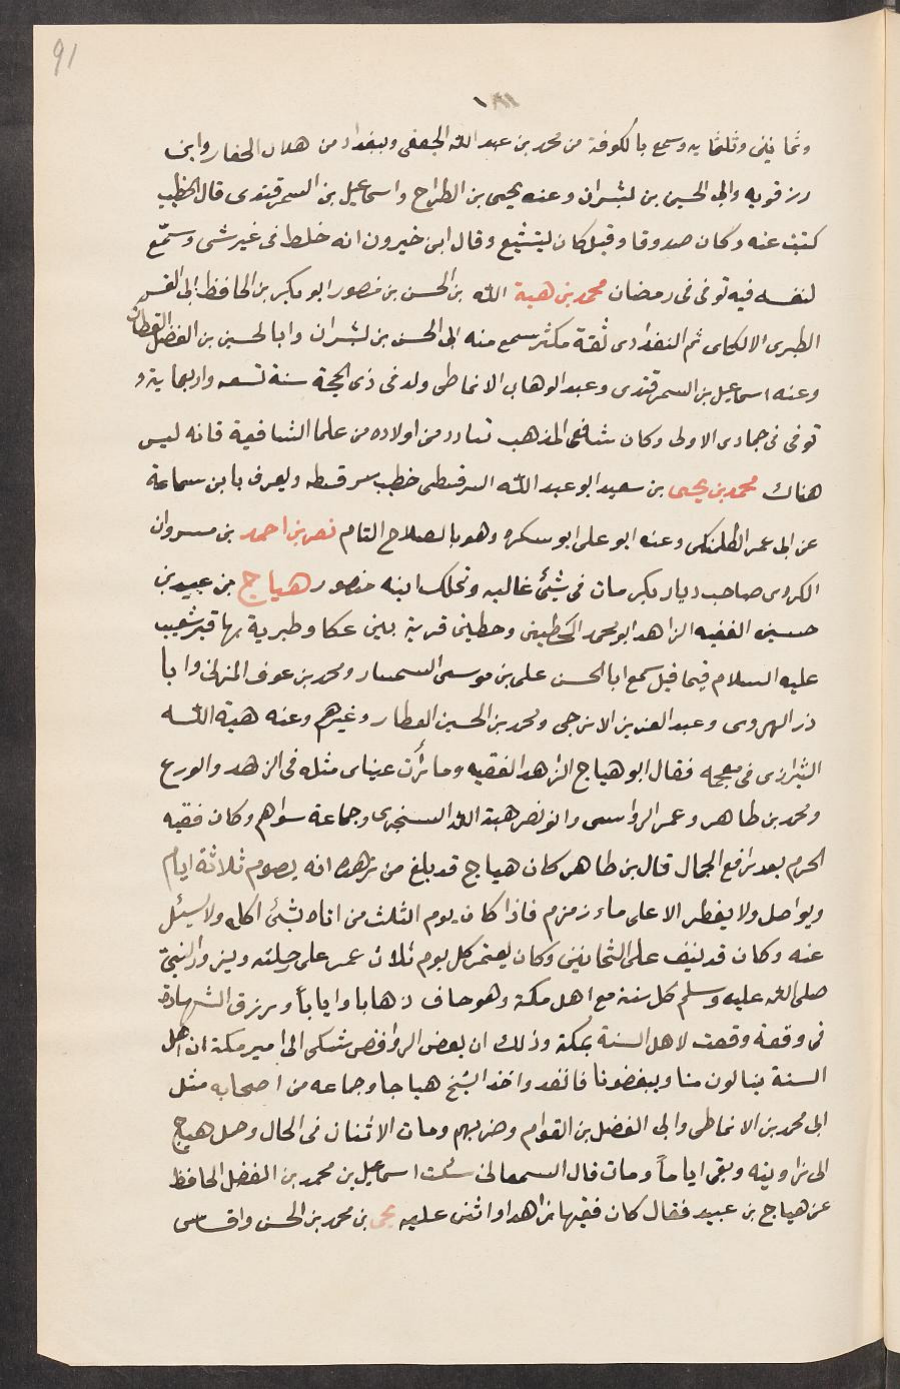 91
وثمانين وثلثمايه وسمع بالكوفة من محمد بن عبد الله الجعفى وببغداد من هلال الحفار وابن
رزقويه وابى الحسين بن بشران وعنه يحيى بن الطراح واسماعيل بن السمرقندى قال الخطيب
كتبت عنه وكان صدوقا وقيل كان يتشيع وقال ابن خيرون انه خلط فى غير شى وسمّع
لنفسه فيه توفى فى رمضان محمد بن هبة الله بن الحسن بن منصور ابو بكر بن الحافظ ابى القسم
الطبرى الالكاى ثم البغدادى ثقة مكثر سمع منه ابى الحسن بن بشران وابا الحسين بن الفضل القطان
وعنه اسماعيل بن السمرقندى وعبد الوهاب الانماطى ولد فى ذى الحجة سنة تسعه واربعماية و
توفى فى جمادى الاولى وكان شافعى المذهب من اولاده من علما الشافعية فانه ليس
هناك محمد بن يحيى بن سعيد ابو عبد الله السرقسطى خطيب سرقسطه ويعرف بابن سماعة
عن ابى عمر الطلمنكى وعنه ابو على ابو سكره وهو بالصلاح التام نصر بن احمد بن مروان
الكردى صاحب ديار بكر مات فى شئ غالبه وتملك ابنه منصور هياج من عبيد بن
حسين الفقيه الزاهد ابو محمد الحطينى وحطين قرية بين عكا وطبرية بها قبر شعيب
عليه السلام فيما قيل سمع ابا الحسن على بن موسى السمسار ومحمد بن عوف المزنى وابا
ذر الهروى وعبد العزيز بن الازجى ومحمد بن الحسين العطار وغيرهم وعنه هبة الله
الشيرازى فى معجمه فقال ابو هياج الزاهد الفقيه وما رأت عيناى مثله فى الزهد والورع
ومحمد بن طاهر وعمر الرواسى وابو نصر هبة الله السنجرى وجماعة سواهم وكان فقيه
الحرم بعد رافع الجمال قال بن طاهر كان هياج قد بلغ من زهده انه يصوم ثلاثة ايام
ويواصل ولا يفطر الا على ماء زمزم فاذا كان يوم الثلث من اتاه بشئ اكله ولا يسئل
عنه وكان قد نيف على الثمانين وكان يعتمر كل يوم ثلاث عمر على رجليه ويزور النبىّ
صلى الله عليه وسلم كل سنة مع اهل مكة وهو حاف ذهابا واياباً ورزق الشهادة
فى وقعة وقعت لاهل السنة بمكة وذلك ان بعض الروافض شكى الى امير مكة ان اهل
السنة ينالون منا ويبغضونا فانفد واخذ الشيخ هياجا وجماعه من اصحابه مثل
ابى محمد بن الانماطى وابى الفضل بن القوام وضربهم ومات الاثنان فى الحال وحمل هياج
الى زاويته وبقى اياماً ومات قال السمعانى سئلت اسماعيل بن محمد بن الفضل الحافظ
عن هياج بن عبيد فقال كان فقيها زاهدا واثنى عليه يحيى بن محمد بن الحسن